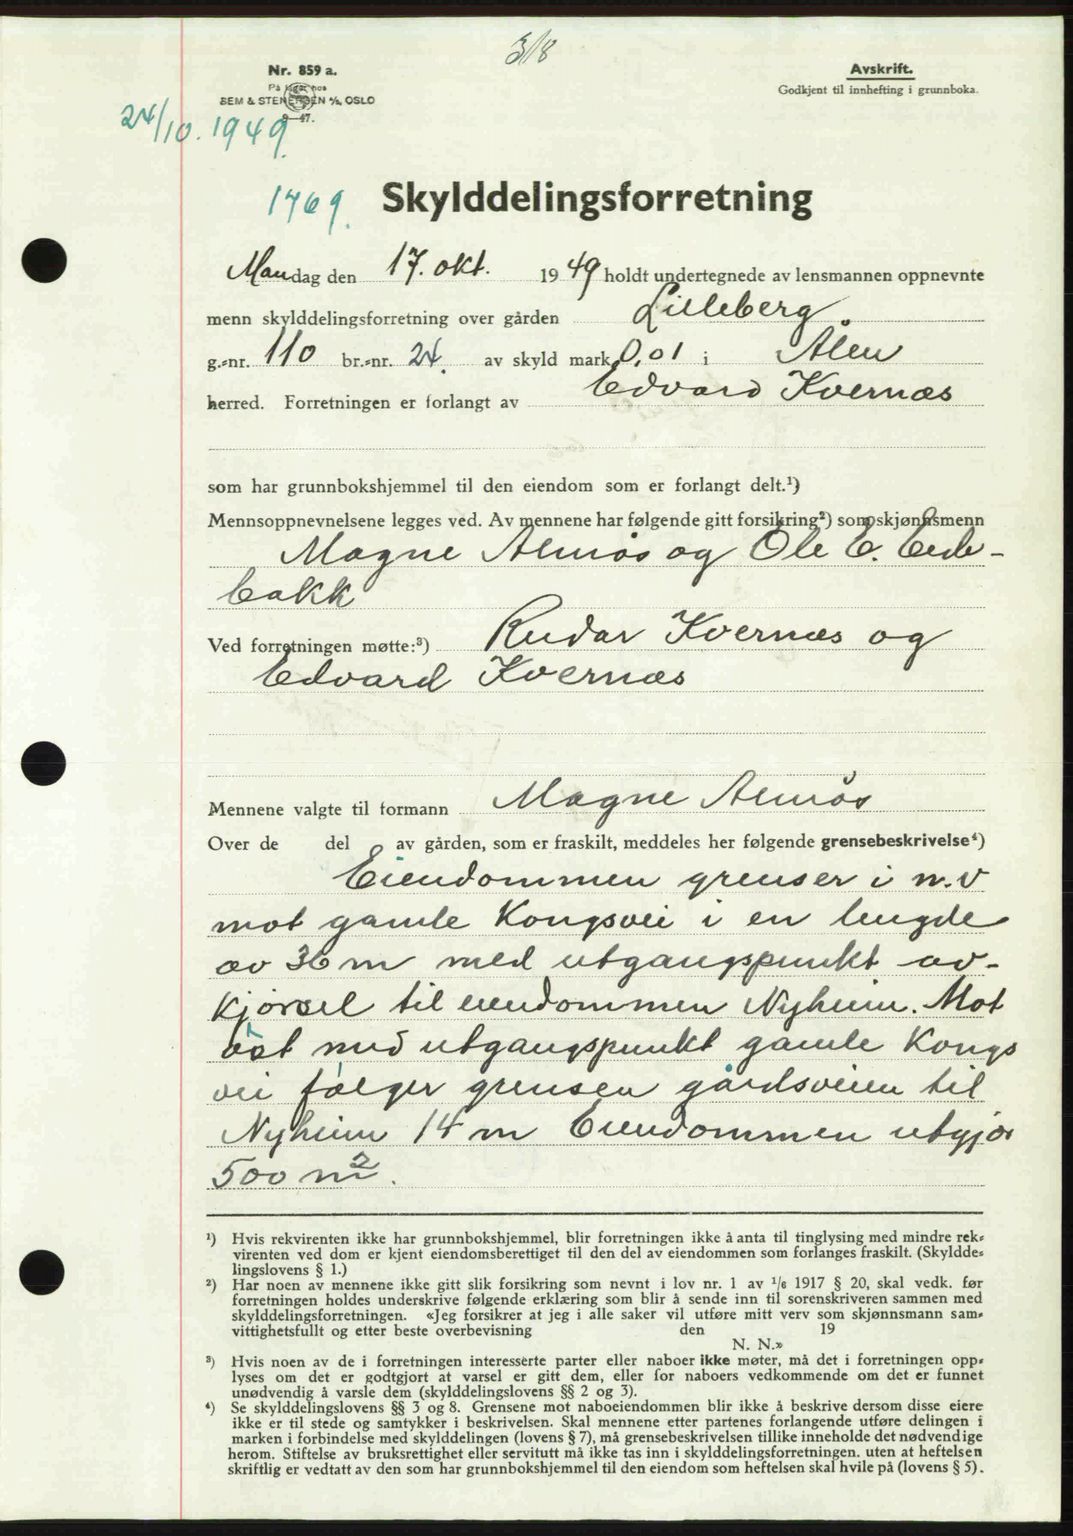 318
Nr. 859 a.
På lager hos
SEM & STENERSEN A/S, OSLO
9—47.
Avskrift.
Godkjent til innhefting i grunnboka.
24/10. 1949.
1769.
Skylddelingsforretning
Mandag den 17. okt. 1949 holdt undertegnede av lensmannen oppnevnte
menn skylddelingsforretning over gården Lilleberg
g.-nr. 110 br.-nr. 24. av skyld mark 0,01 i Ålen
herred. Forretningen er forlangt av Edvard Kvernæs
som har grunnbokshjemmel til den eiendom som er forlangt delt.¹)
Mennsoppnevnelsene legges ved. Av mennene har følgende gitt forsikring²) som skjønnsmenn
Magne Almås og Ole E.
bakk
Ved forretningen møtte:³) Reidar Kvernæs og
Edvard Kvernæs
Mennene valgte til formann Magne Almås
Over de del av gården, som er fraskilt, meddeles her følgende grensebeskrivelse⁴)
Eiendommen grenser i n.v
mot gamle Kongsvei i en lengde
av 36 m med utgangspunkt av-
kjørsel til eiendommen Nyheim. Mot
øst med utgangspunkt gamle Kongs
vei følger grensen gårdsveien til
Nyheim 14 m Eiendommen utgjør
500 m².
¹) Hvis rekvirenten ikke har grunnbokshjemmel, blir forretningen ikke å anta til tinglysing med mindre rek-
virenten ved dom er kjent eiendomsberettiget til den del av eiendommen som forlanges fraskilt. (Skyldde-
lingslovens § 1.)
²) Har noen av mennene ikke gitt slik forsikring som nevnt i lov nr. 1 av 1/6 1917 § 20, skal vedk. før
forretningen holdes underskrive følgende erklæring som blir å sende inn til sorenskriveren sammen med
skylddelingsforretningen. «Jeg forsikrer at jeg i alle saker vil utføre mitt verv som skjønnsmann sam-
vittighetsfullt og etter beste overbevisning den 19
N. N.»
³) Hvis noen av de i forretningen interesserte parter eller naboer ikke møter, må det i forretningen opp-
lyses om det er godtgjort at varsel er gitt dem, eller for naboers vedkommende om det er funnet
unødvendig å varsle dem (skylddelingslovens §§ 2 og 3).
⁴) Se skylddelingslovens §§ 3 og 8. Grensene mot naboeiendommen blir ikke å beskrive dersom disse eiere
ikke er til stede og samtykker i beskrivelsen. Skal mennene etter partenes forlangende utføre delingen i
marken i forbindelse med skylddelingen (lovens § 7), må grensebeskrivelsen tillike inneholde det nødvendige
herom. Stiftelse av bruksrettighet eller servitutt må ikke tas inn i skylddelingsforretningen, uten at heftelsen
skriftlig er vedtatt av den som har grunnbokshjemmel til den eiendom som heftelsen skal hvile på (lovens § 5).